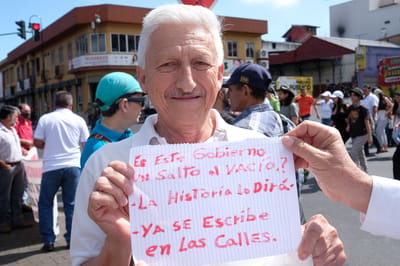 Es Este Gobierno
un Salto al Vacío.?
- La Historia Lo Dirá.
- Ya se Escribe
en Las Calles.